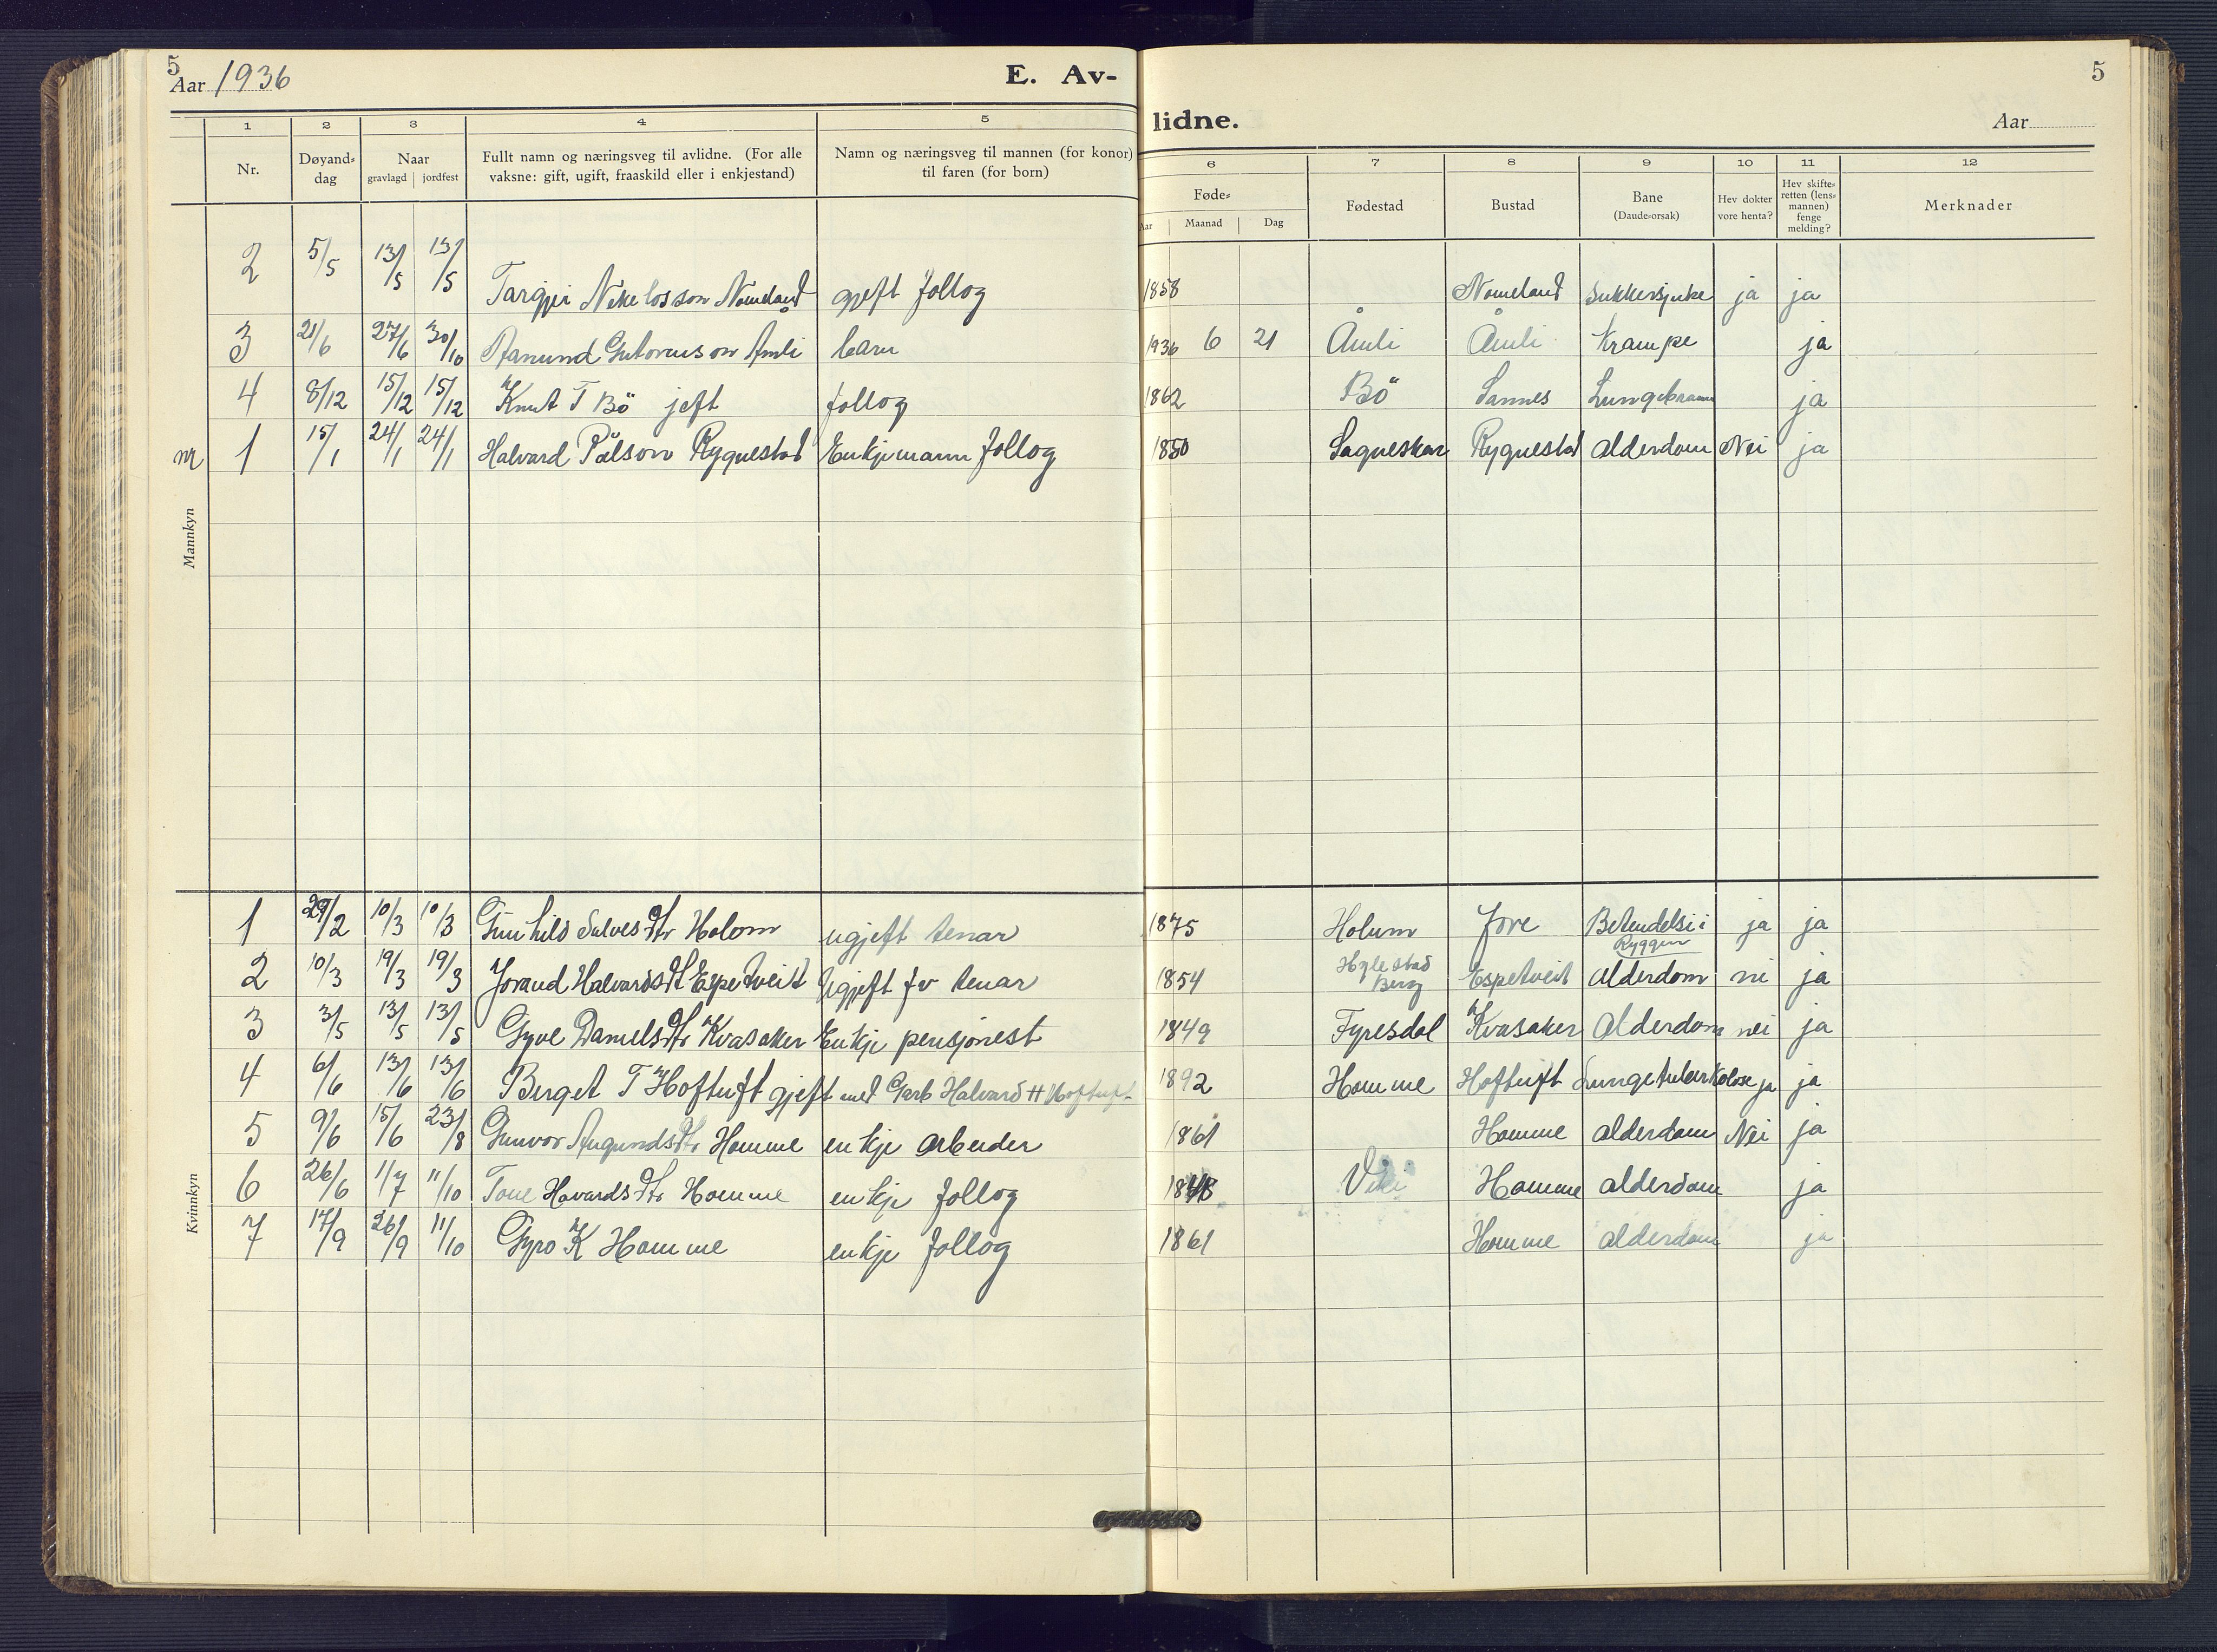 5
Aar 1936
E. Av-
lidne.
5
Aar
1 2 3 4 5 6 7 8 9 10 11 12
Nr.
Døyand-
dag
Naar
gravlagd jordfest
Fullt namn og næringsveg til avlidne. (For alle
vaksne: gift, ugift, fraaskild eller i enkjestand)
Namn og næringsveg til mannen (for konor)
til faren (for born)
Føde-
Aar Maanad Dag
Fødestad
Bustad
Bane
(Daude-orsak)
Hev dokter
vore henta?
Hev skifte-
retten (lens-
mannen)
fenge
melding?
Merknader
Mannkyn
2 5/5 13/5 13/5 Targjei Nikelosson Nomeland gjeft follog 1858 Nomeland Sukkersjuke ja ja
3 21/6 27/6 30/10 Aanund Gutormson Åmli barn 1936 6 21 Åmli Åmli Krampe ja
4 8/12 15/12 15/12 Knut T Bö jeft follog 1862 Bö Sannes ja
nr 1 15/1 24/1 24/1 Halvard Pålson Rygnestad Enkjemann follog 1850 Sagneskar Rygnestad Alderdom Nei ja
Kvinnkyn
1 29/2 10/3 10/3 Gunhild Salvesdtr Holom ugjeft tenar 1875 Holum Jore Betendelsi i ja ja
Ryggen
2 10/3 19/3 19/3 Joraud Halvardsdt Espetveit Ugjeft fv tenar 1854 Hylestad Espetveit Alderdom ni ja
Berg
3 3/5 13/5 13/5 Gyve Danielsdtr Kvasaker Enkje pensjonest 1849 Fyresdal Kvasaker Alderdom nei ja
4 6/6 13/6 13/6 Berget T Hoftuft gjeft med Garb Halvard H Hoftuft 1892 Homme Hoftuft Lungetuberkolose ja ja
5 9/6 15/6 23/8 Gunvor Augundsdtr Homme enkje arbeider 1861 Homme alderdom Nei ja
6 26/6 1/7 11/10 Tone Havardsdtr Homme enkje follog Viki Homme alderdom ja
7 17/9 26/9 11/10 Gyro K Homme enkje follog 1861 Homme alderdom ja